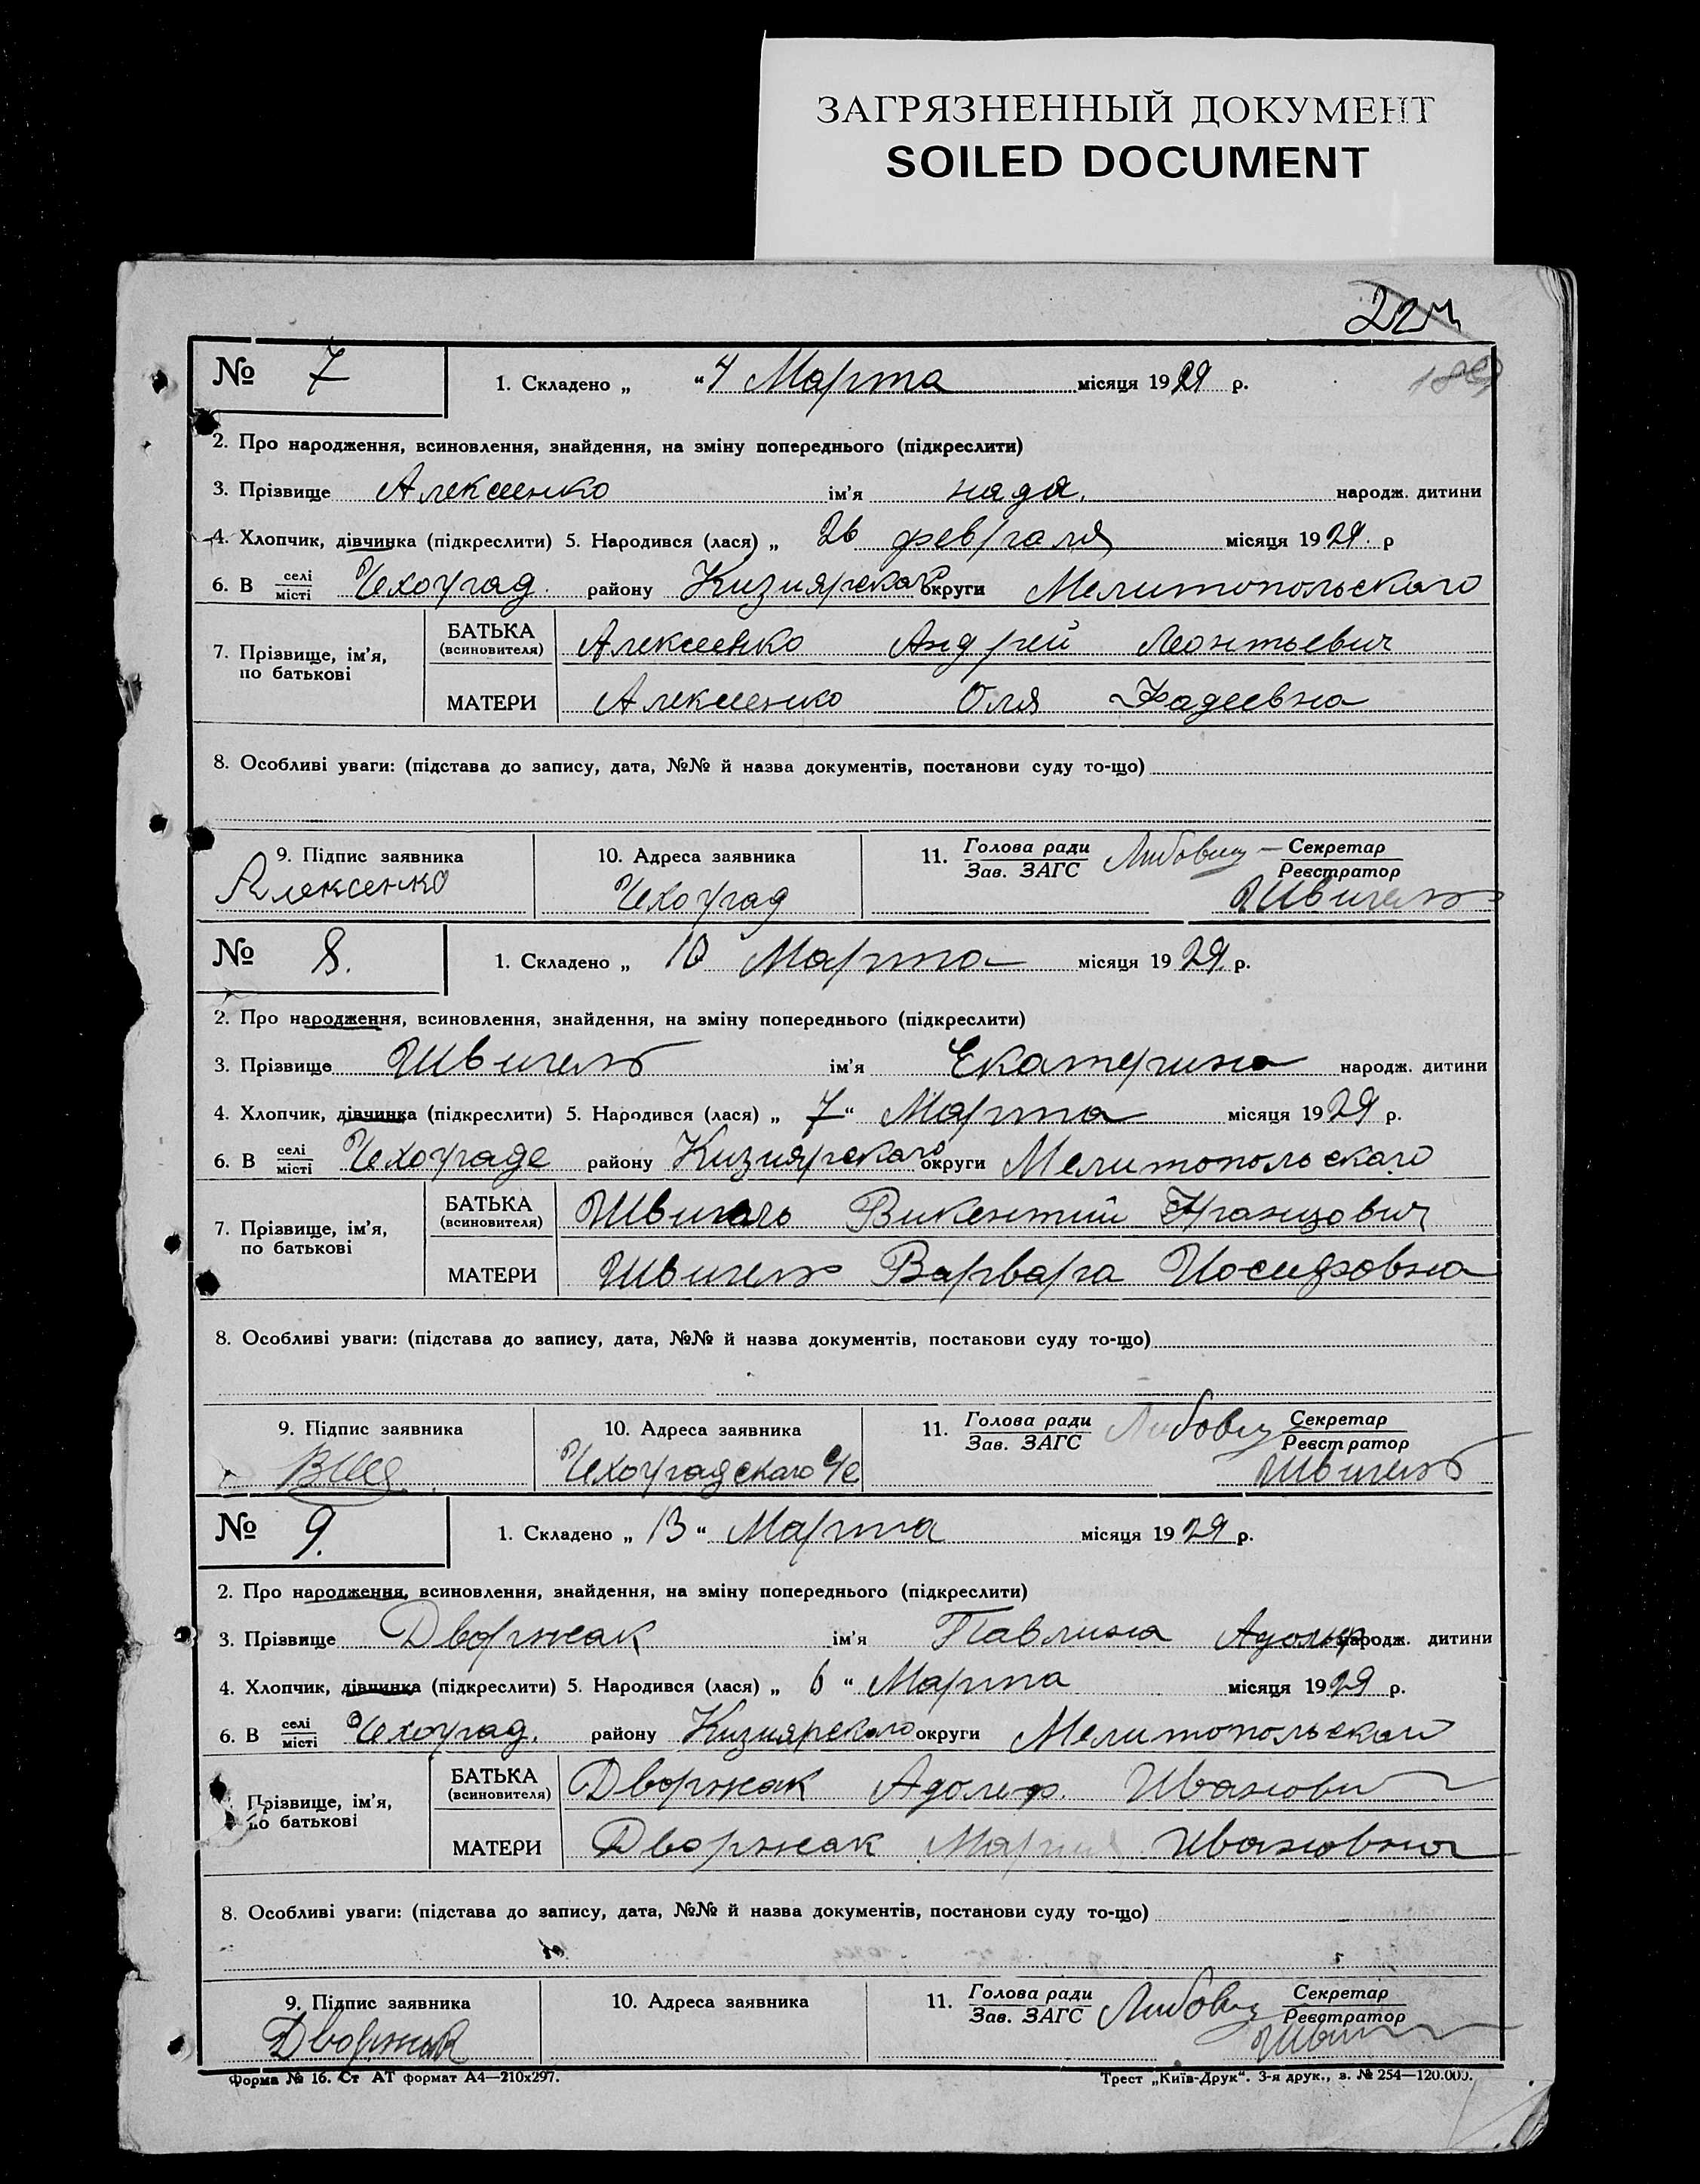 ЗАГРЯЗНЕННЫЙ ДОКУМЕНТ
SOILED DOCUMENT
№ 7 1. Складено „ “ 4 Марта місяця 1929 р.
2. Про народження, всиновлення, знайдення, на зміну попереднього (підкреслити)
3. Прізвище Алексенко ім'я надя. народж. дитини
4. Хлопчик, дівчинка (підкреслити) 5. Народився (лася) „ 26 февраля місяця 1929. р
6. В селі/місті Чехоград. району Кизиярскаго округи Мелитопольскаго
7. Прізвище, ім'я, по батькові БАТЬКА (всиновителя) Алексенко Андрей Леонтьевич
МАТЕРИ Алексенко Оля Фадеевна
8. Особливі уваги: (підстава до запису, дата, №№ й назва документів, постанови суду то-що)
9. Підпис заявника 10. Адреса заявника 11. Голова ради/Зав. ЗАГС Секретар/Реєстратор
Алексенко Чехоград Швигель
№ 8. 1. Складено „ 10 Марта місяця 1929. р.
2. Про народження, всиновлення, знайдення, на зміну попереднього (підкреслити)
3. Прізвище Швигель ім'я Екатерина народж. дитини
4. Хлопчик, дівчинка (підкреслити) 5. Народився (лася) „ 7 “ Марта місяця 1929 р.
6. В селі/місті Чехограде району Кизиярскаго округи Мелитопольскаго
7. Прізвище, ім'я, по батькові БАТЬКА (всиновителя) Швигель Викентий Францович
МАТЕРИ Швигель Варвара Иосифовна
8. Особливі уваги: (підстава до запису, дата, №№ й назва документів, постанови суду то-що)
9. Підпис заявника 10. Адреса заявника 11. Голова ради/Зав. ЗАГС Секретар/Реєстратор
Чехоградскаго с/с Швигель
№ 9. 1. Складено „ 13 “ Марта місяця 1929 р.
2. Про народження, всиновлення, знайдення, на зміну попереднього (підкреслити)
3. Прізвище Дворжак ім'я Павлина Адольф народж. дитини
4. Хлопчик, дівчинка (підкреслити) 5. Народився (лася) „ 6 “ Марта місяця 1929 р.
6. В селі/місті Чехоград. району Кизиярскаго округи Мелитопольскаго
Прізвище, ім'я, по батькові БАТЬКА (всиновителя) Дворжак Адольф. Иванови
МАТЕРИ Дворжак Мария Ивановна
8. Особливі уваги: (підстава до запису, дата, №№ й назва документів, постанови суду то-що)
9. Підпис заявника 10. Адреса заявника 11. Голова ради/Зав. ЗАГС Секретар/Реєстратор
Дворжак
Форма № 16. Ст АТ формат А4—210х297. Трест „Київ-Друк“. 3-я друк., з. № 254—120.000.